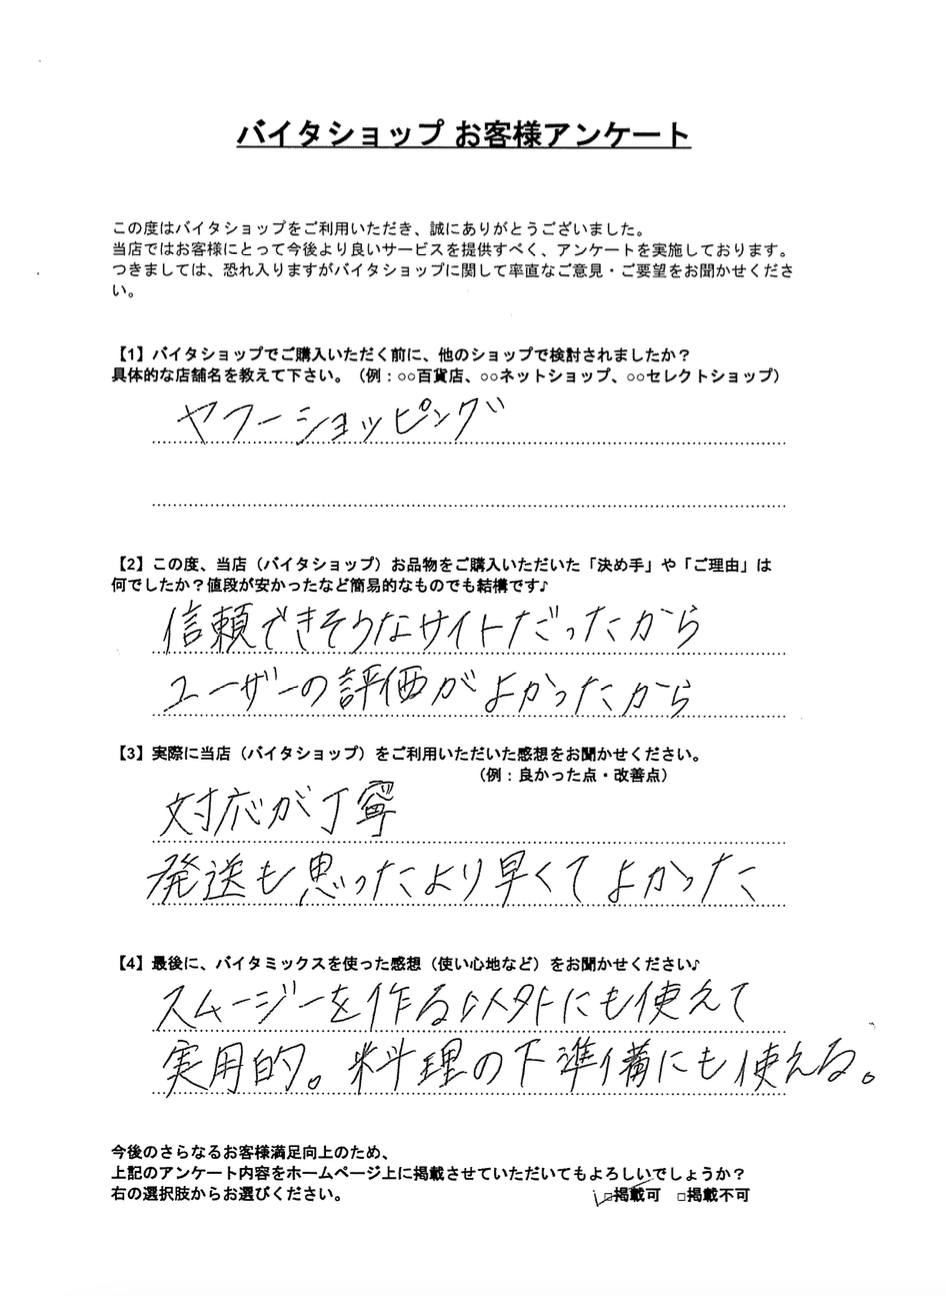 バイタショップ お客様アンケート
この度はバイタショップをご利用いただき、誠にありがとうございました。
当店ではお客様にとって今後より良いサービスを提供すべく、アンケートを実施しております。
つきましては、恐れ入りますがバイタショップに関して率直なご意見・ご要望をお聞かせくださ
い。
【1】バイタショップでご購入いただく前に、他のショップで検討されましたか？
具体的な店舗名を教えて下さい。（例：○○百貨店、○○ネットショップ、○○セレクトショップ）
ヤフーショッピング
【2】この度、当店（バイタショップ）お品物をご購入いただいた「決め手」や「ご理由」は
何でしたか？値段が安かったなど簡易的なものでも結構です♪
信頼できそうなサイトだったから
ユーザーの評価がよかったから
【3】実際に当店（バイタショップ）をご利用いただいた感想をお聞かせください。
（例：良かった点・改善点）
対応が丁寧
発送も思ったより早くてよかった
【4】最後に、バイタミックスを使った感想（使い心地など）をお聞かせください♪
スムージーを作る以外にも使えて
実用的。料理の下準備にも使える。
今後のさらなるお客様満足向上のため、
上記のアンケート内容をホームページ上に掲載させていただいてもよろしいでしょうか？
右の選択肢からお選びください。 ☑掲載可 □掲載不可